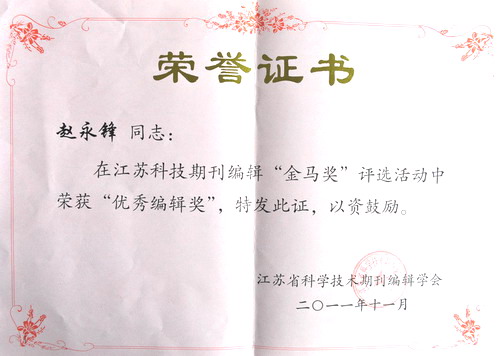 荣誉证书
赵永锋 同志：
在江苏科技期刊编辑“金马奖”评选活动中
荣获“优秀编辑奖”，特发此证，以资鼓励。
江苏省科学技术期刊编辑学会
二〇一一年十一月